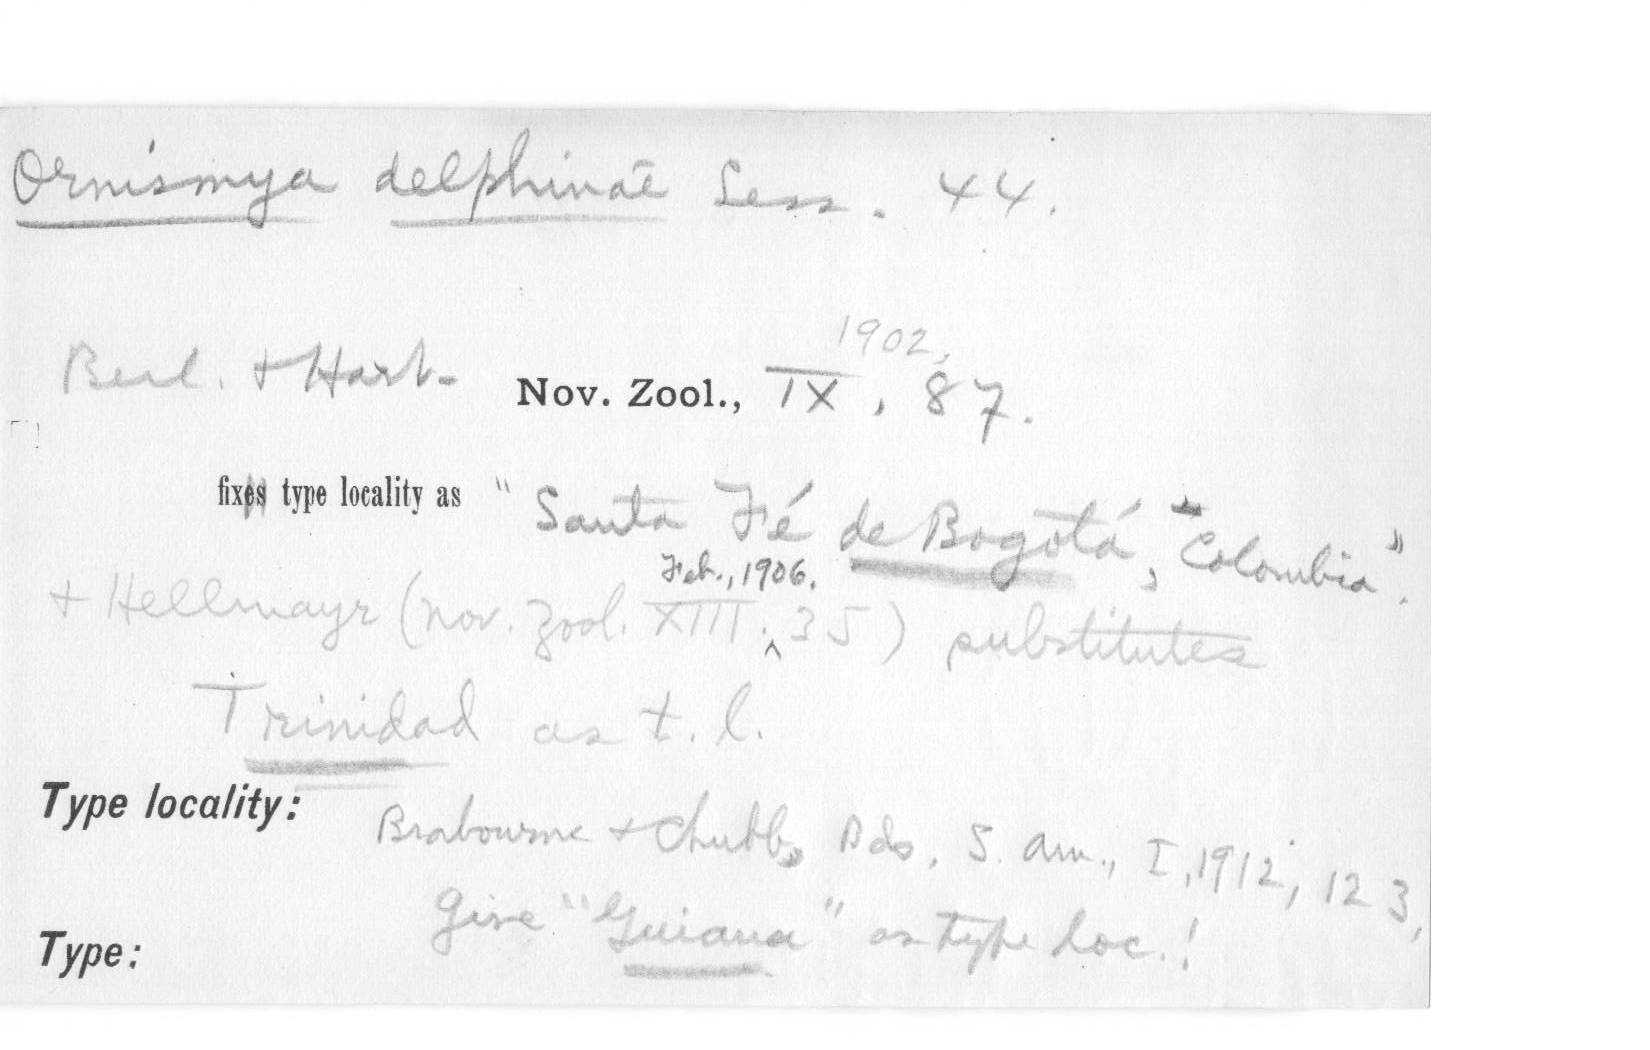 Ornismya delphinae Less. 44.
1902,
Berl. + Hart. Nov. Zool., IX, 87.
fixes type locality as "Santa Fé de Bogotá, Colombia".
Feb., 1906.
+ Hellmayr (Nov. Zool. XIII. ^ 35) substitutes
Trinidad as t. l.
Type locality:
Brabourne + Chubb, Bds. S. Am., I, 1912, 123,
Give "Guiana" as type loc.!
Type: